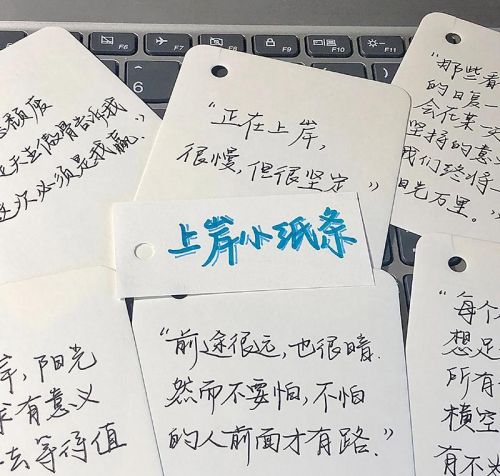 F6
F7
F8
F9
F10
F11
6
颜废
去傲骨告诉我
这次必须是我赢."
"正在上岸,
很慢,但很坚定."
"那些看
的日复一
会在某
坚持的意义
我们终将
阳光万里。"
上岸小纸条
岸,阳光
有意义
去等待值
"前途很远,也很暗.
然而不要怕,不怕
的人前面才有路."
"每个
想走
所有
横空
有不